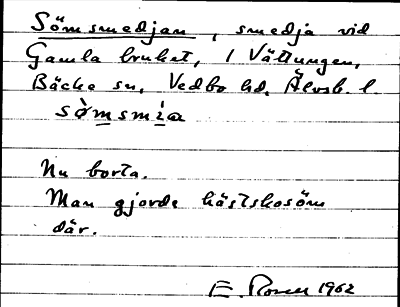 Sömsmedjan, smedja vid
Gamla bruket, i Vättungen,
Bäcke sn, Vedbo hd, Älvsb. l.
sö̀msmìa
Nu borta.
Man gjorde hästskosöm
där.
E. Rosell 1962